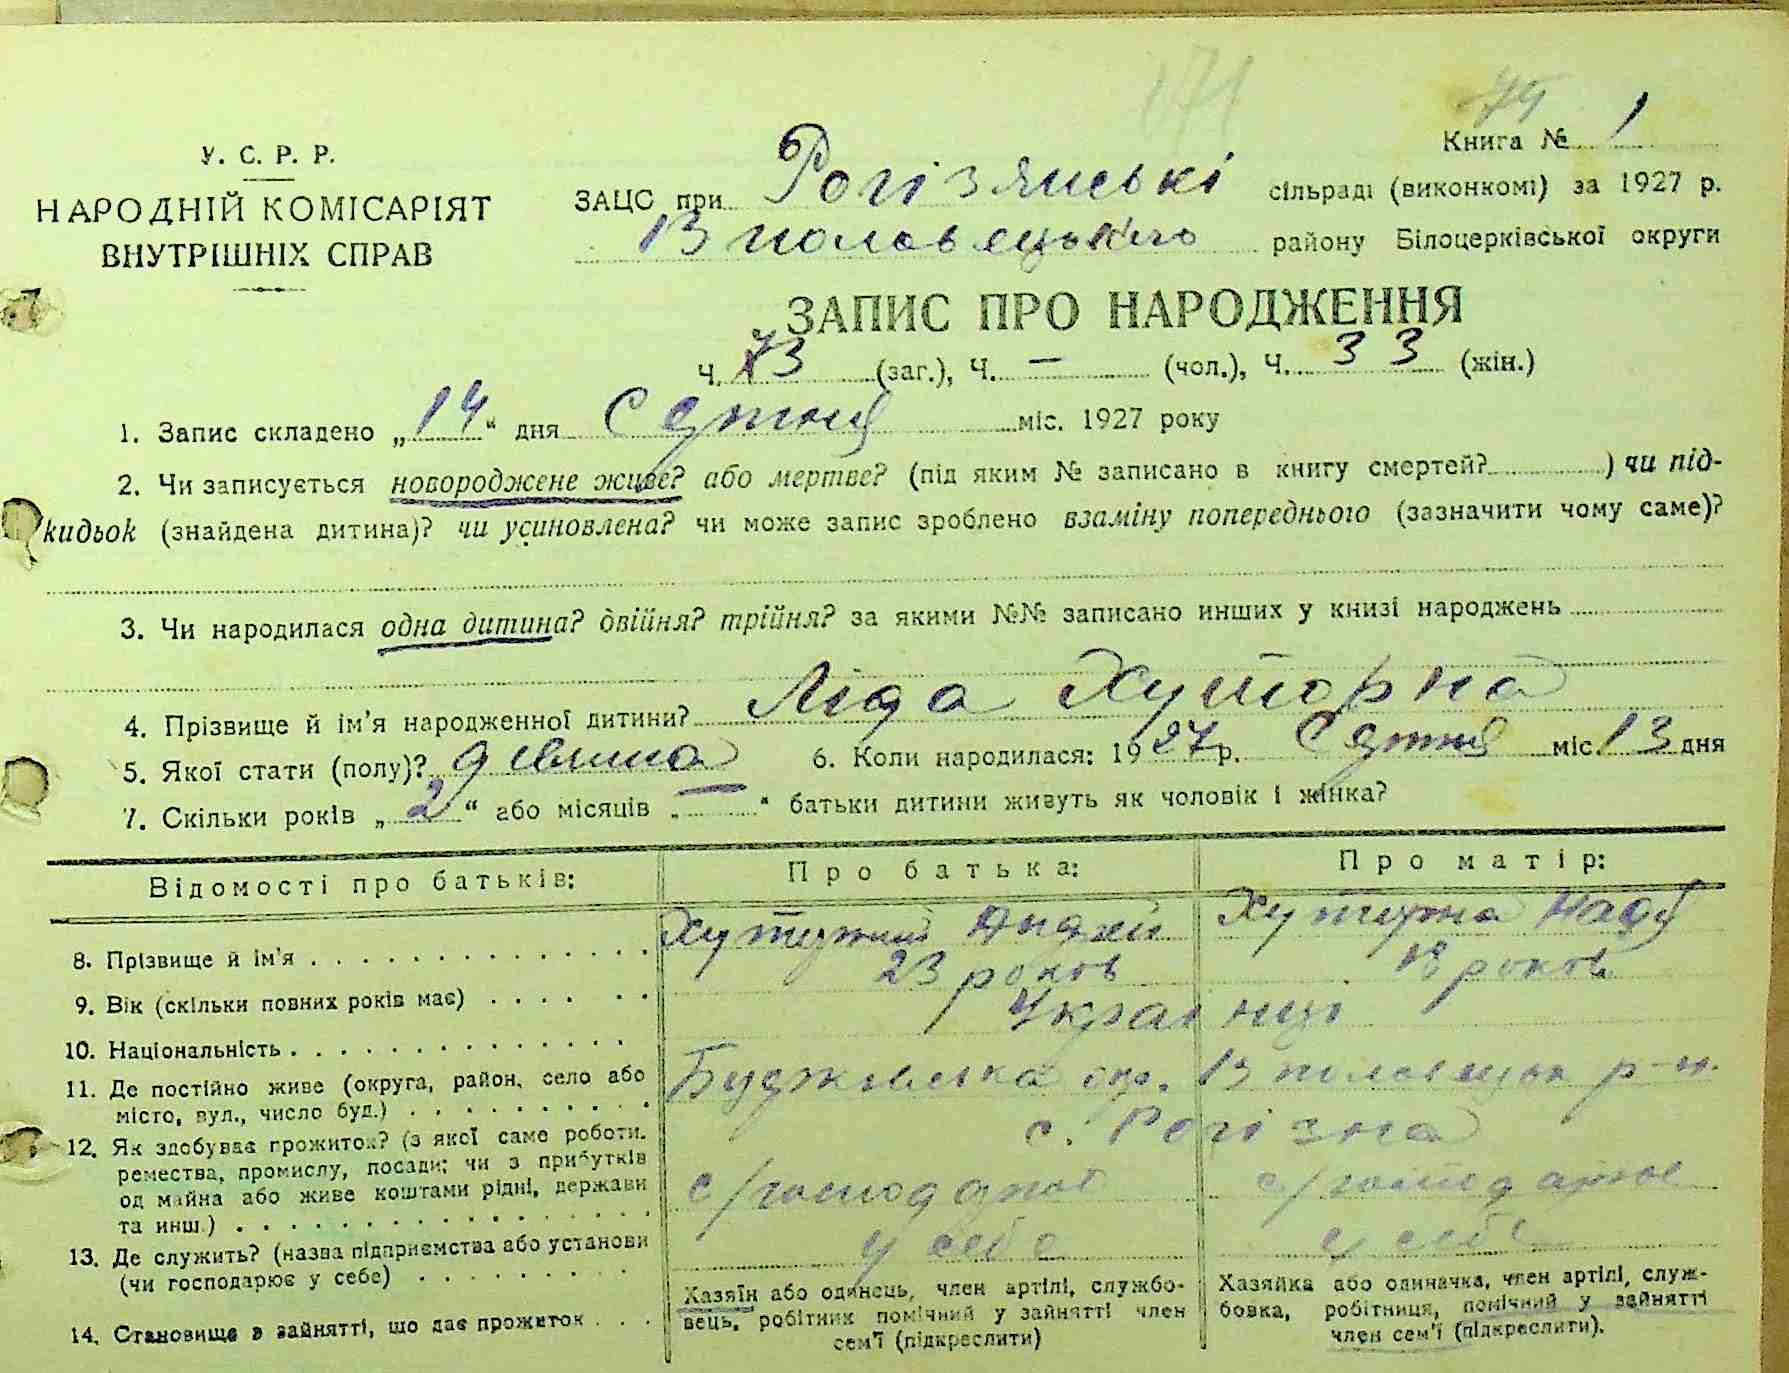 171
75
Книга № 1
У. С. Р. Р.
НАРОДНІЙ КОМІСАРІЯТ
ВНУТРІШНІХ СПРАВ
ЗАЦС при Рогізянські сільраді (виконкомі) за 1927 р.
Вполовецького району Білоцерківської округи
ЗАПИС ПРО НАРОДЖЕННЯ
Ч. 73 (заг.), Ч. — (чол.), Ч. 33 (жін.)
1. Запис складено „14“ дня Серпня міс. 1927 року
2. Чи записується новороджене живе? або мертве? (під яким № записано в книгу смертей? ) чи під-
кидьок (знайдена дитина)? чи усиновлена? чи може запис зроблено взаміну попереднього (зазначити чому саме)?
3. Чи народилася одна дитина? двійня? трійня? за якими №№ записано инших у книзі народжень
4. Прізвище й ім'я народженної дитини? Ліда Хуторна
5. Якої стати (полу)? дівчина 6. Коли народилася: 1927 р. Серпня міс. 13 дня
7. Скільки років „2“ або місяців „—“ батьки дитини живуть як чоловік і жінка?
Відомості про батьків: Про батька: Про матір:
8. Прізвище й ім'я Хуторний Андрій Хуторна Надя
9. Вік (скільки повних років має) 23 років 18 років
10. Національність Українці
11. Де постійно живе (округа, район, село або
місто, вул., число буд.)
окр. Вполовецьк р-н.
с. Рогізна
12. Як здобуває прожиток? (з якої саме роботи,
ремества, промислу, посади; чи з прибутків
од майна або живе коштами рідні, держави
та инш.)
с/господарює с/господарює
13. Де служить? (назва підприємства або установи
(чи господарює у себе)
у себе у себе
14. Становище в зайнятті, що дає прожиток
Хазяїн або одинець, член артілі, службо-
вець, робітник помічний у зайнятті член
сем'ї (підкреслити)
Хазяйка або одиначка, член артілі, служ-
бовка, робітниця, помічний у зайнятті
член сем'ї (підкреслити).